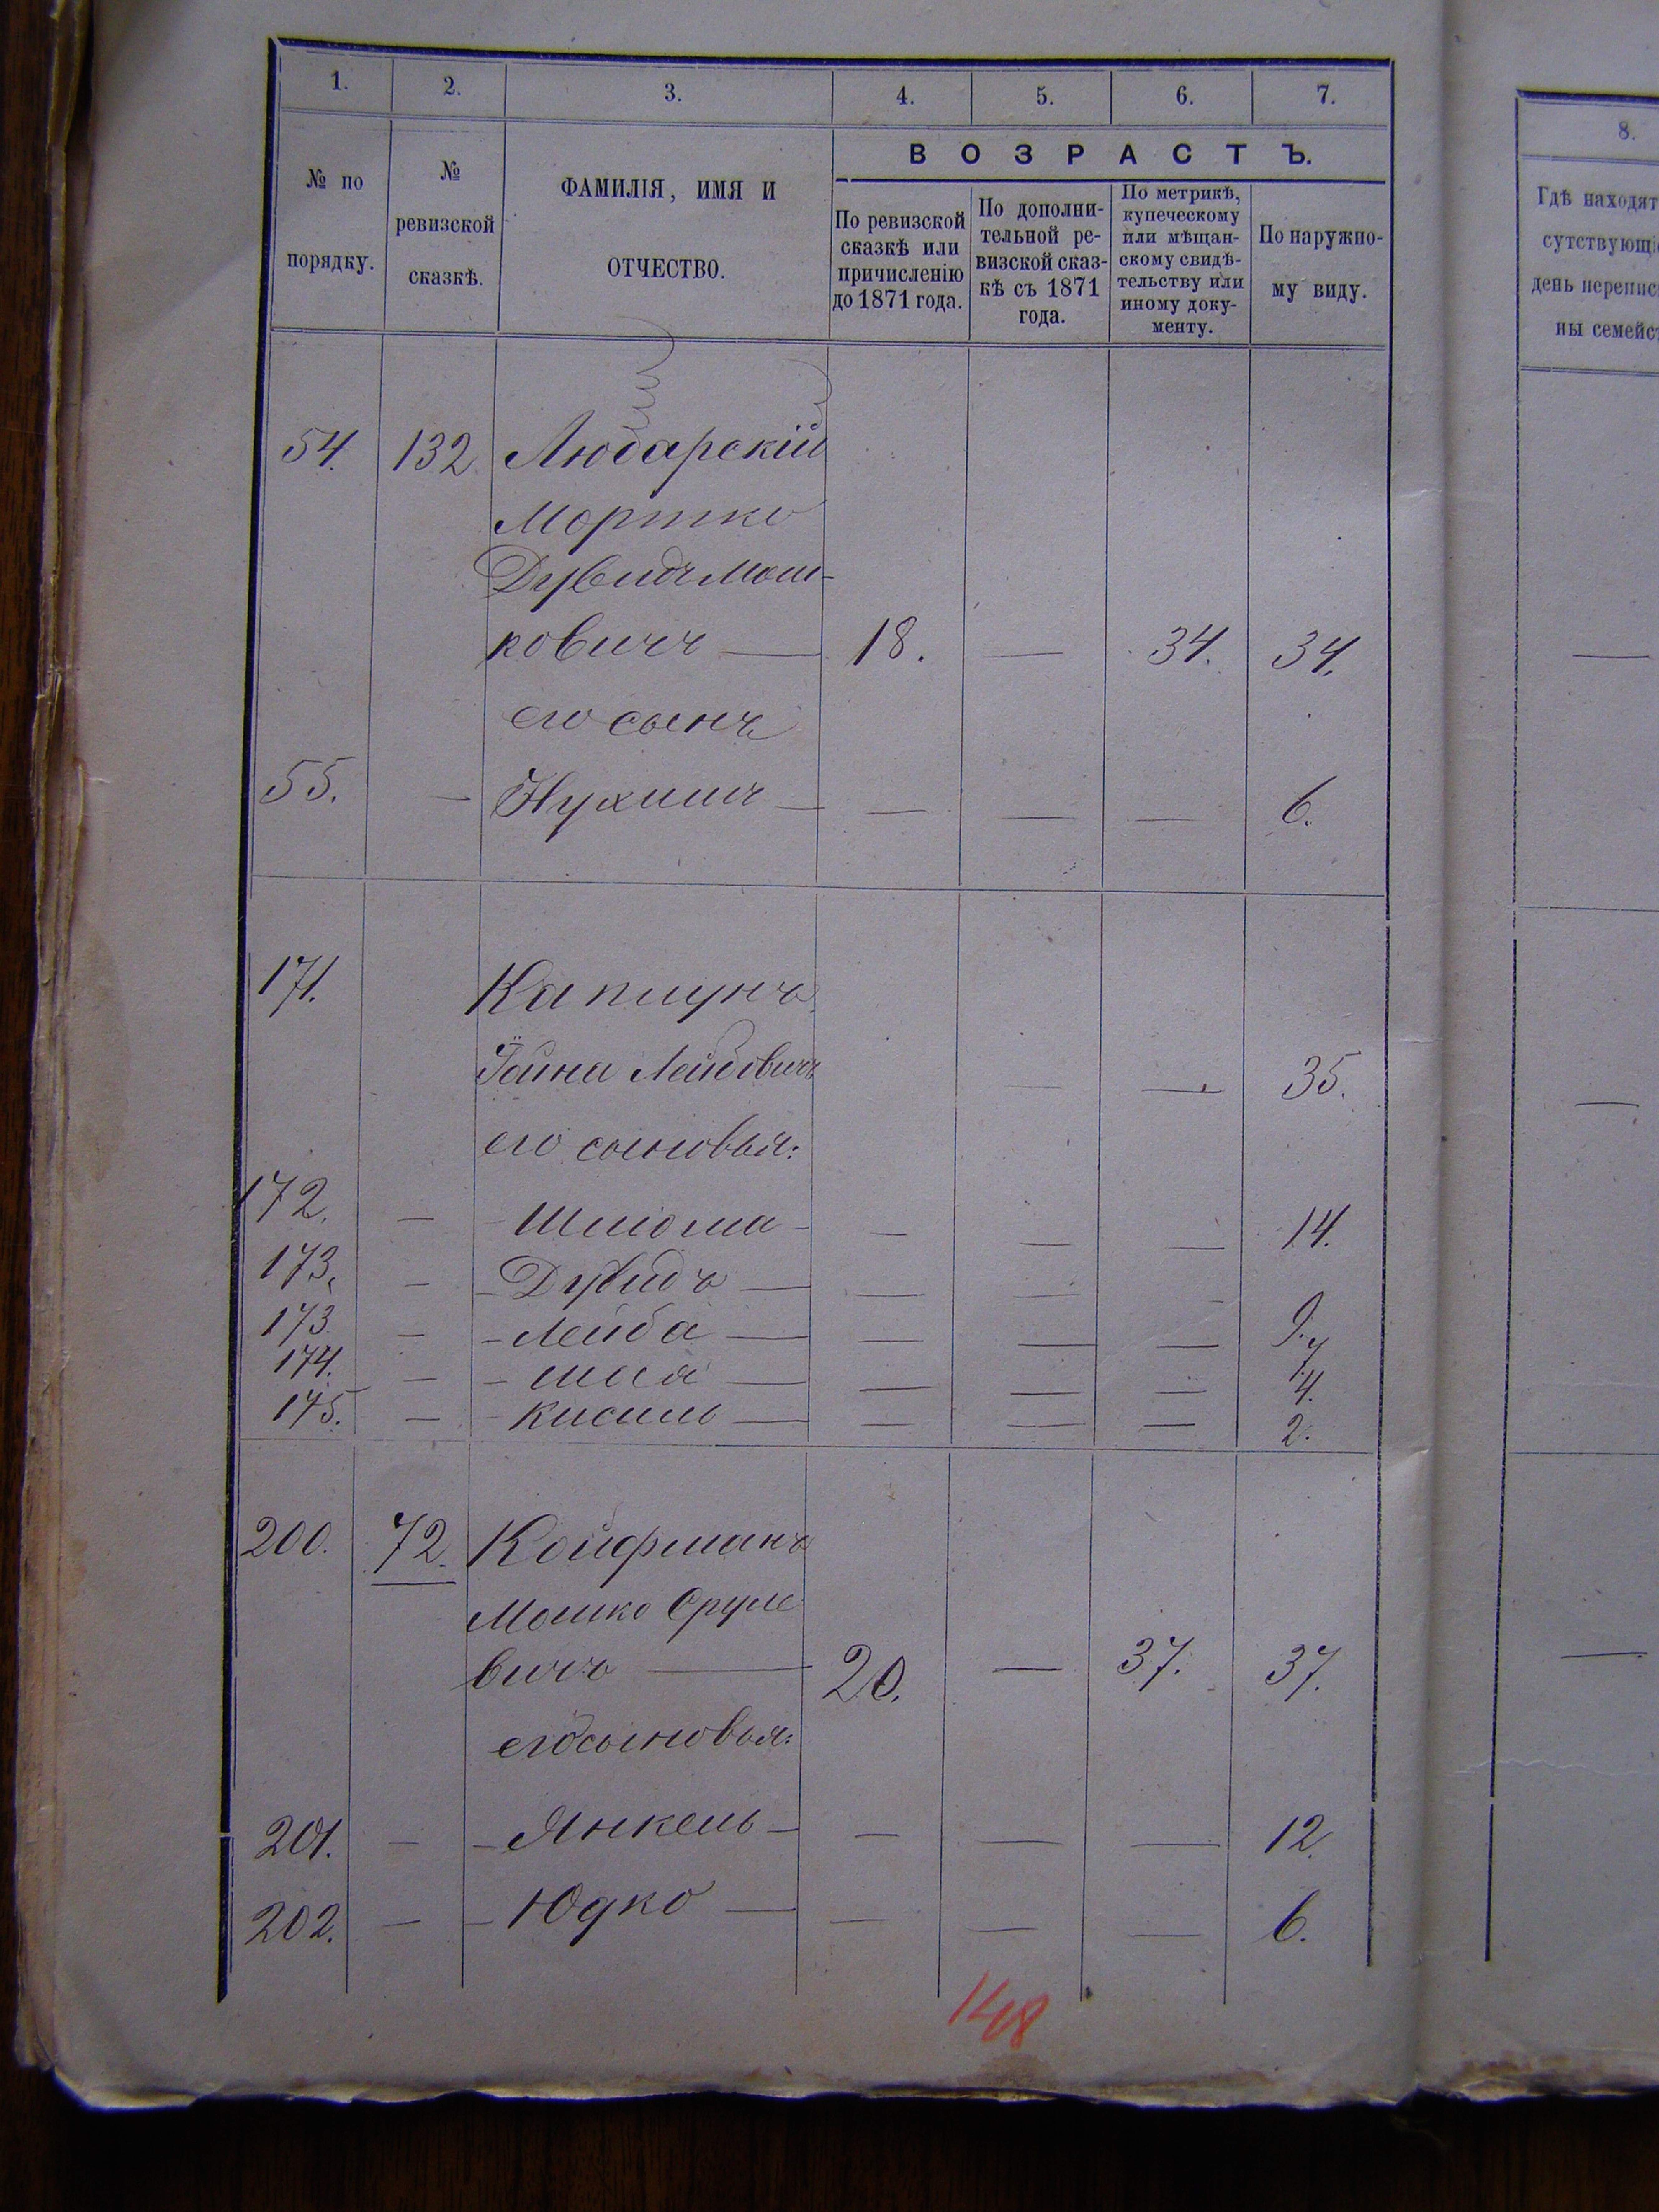 1. 2. 3. 4. 5. 6. 7.
№ по порядку.
№ ревизской сказкѣ.
ФАМИЛІЯ, ИМЯ И ОТЧЕСТВО.
ВОЗРАСТЪ.
По ревизской сказкѣ или причисленію до 1871 года.
По дополнительной ревизской сказкѣ съ 1871 года.
По метрикѣ, купеческому или мѣщанскому свидѣтельству или иному документу.
По наружному виду.
54. 132 Любарскій
Мортко
Дувидъ Мош-
ковичъ — 18. — 34. 34.
его сынъ
55. — Нухимъ — — — — 6.
171. Каплунъ
Іойна Лейбовичъ — — 35.
его сыновья:
172. — Шлиома — — — — 14.
173. — Дувидъ — — — — 9.
173 — Лейба — — — — 7
174. — Шая — — — — 4.
175. — Кисиль — — — — 2.
200. 72. Койфманъ
Мошко Сруле
вичъ — 20. — 37. 37.
его сыновья:
201. — Янкель — — — — 12.
202. — Юдко — — — — 6.
148
8.
Гдѣ находят
сутствующі
день перепис
ны семейст
—
—
—